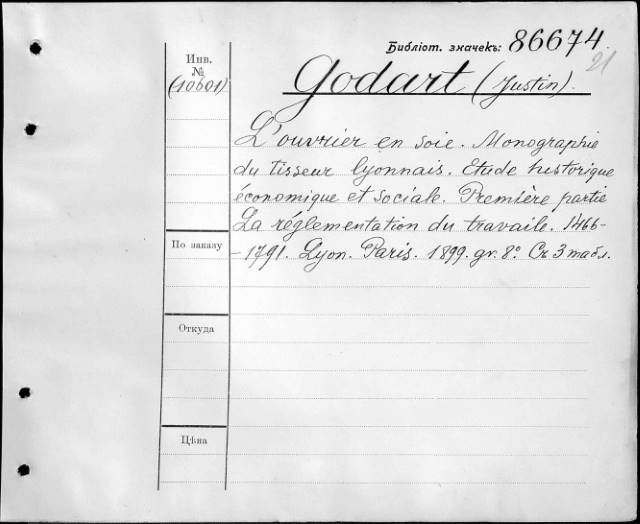 Библіот. значекъ: 86674
21
Инв.
№
(10601)
Godart (Justin).
L'ouvrier en soie. Monographie
du tisseur lyonnais. Etude historique
économique et sociale. Première partie
La réglementation du travaile. 1466-
-1791. Lyon. Paris. 1899. gr. 8º. Съ 3 табл.
По заказу
Откуда
Цѣна